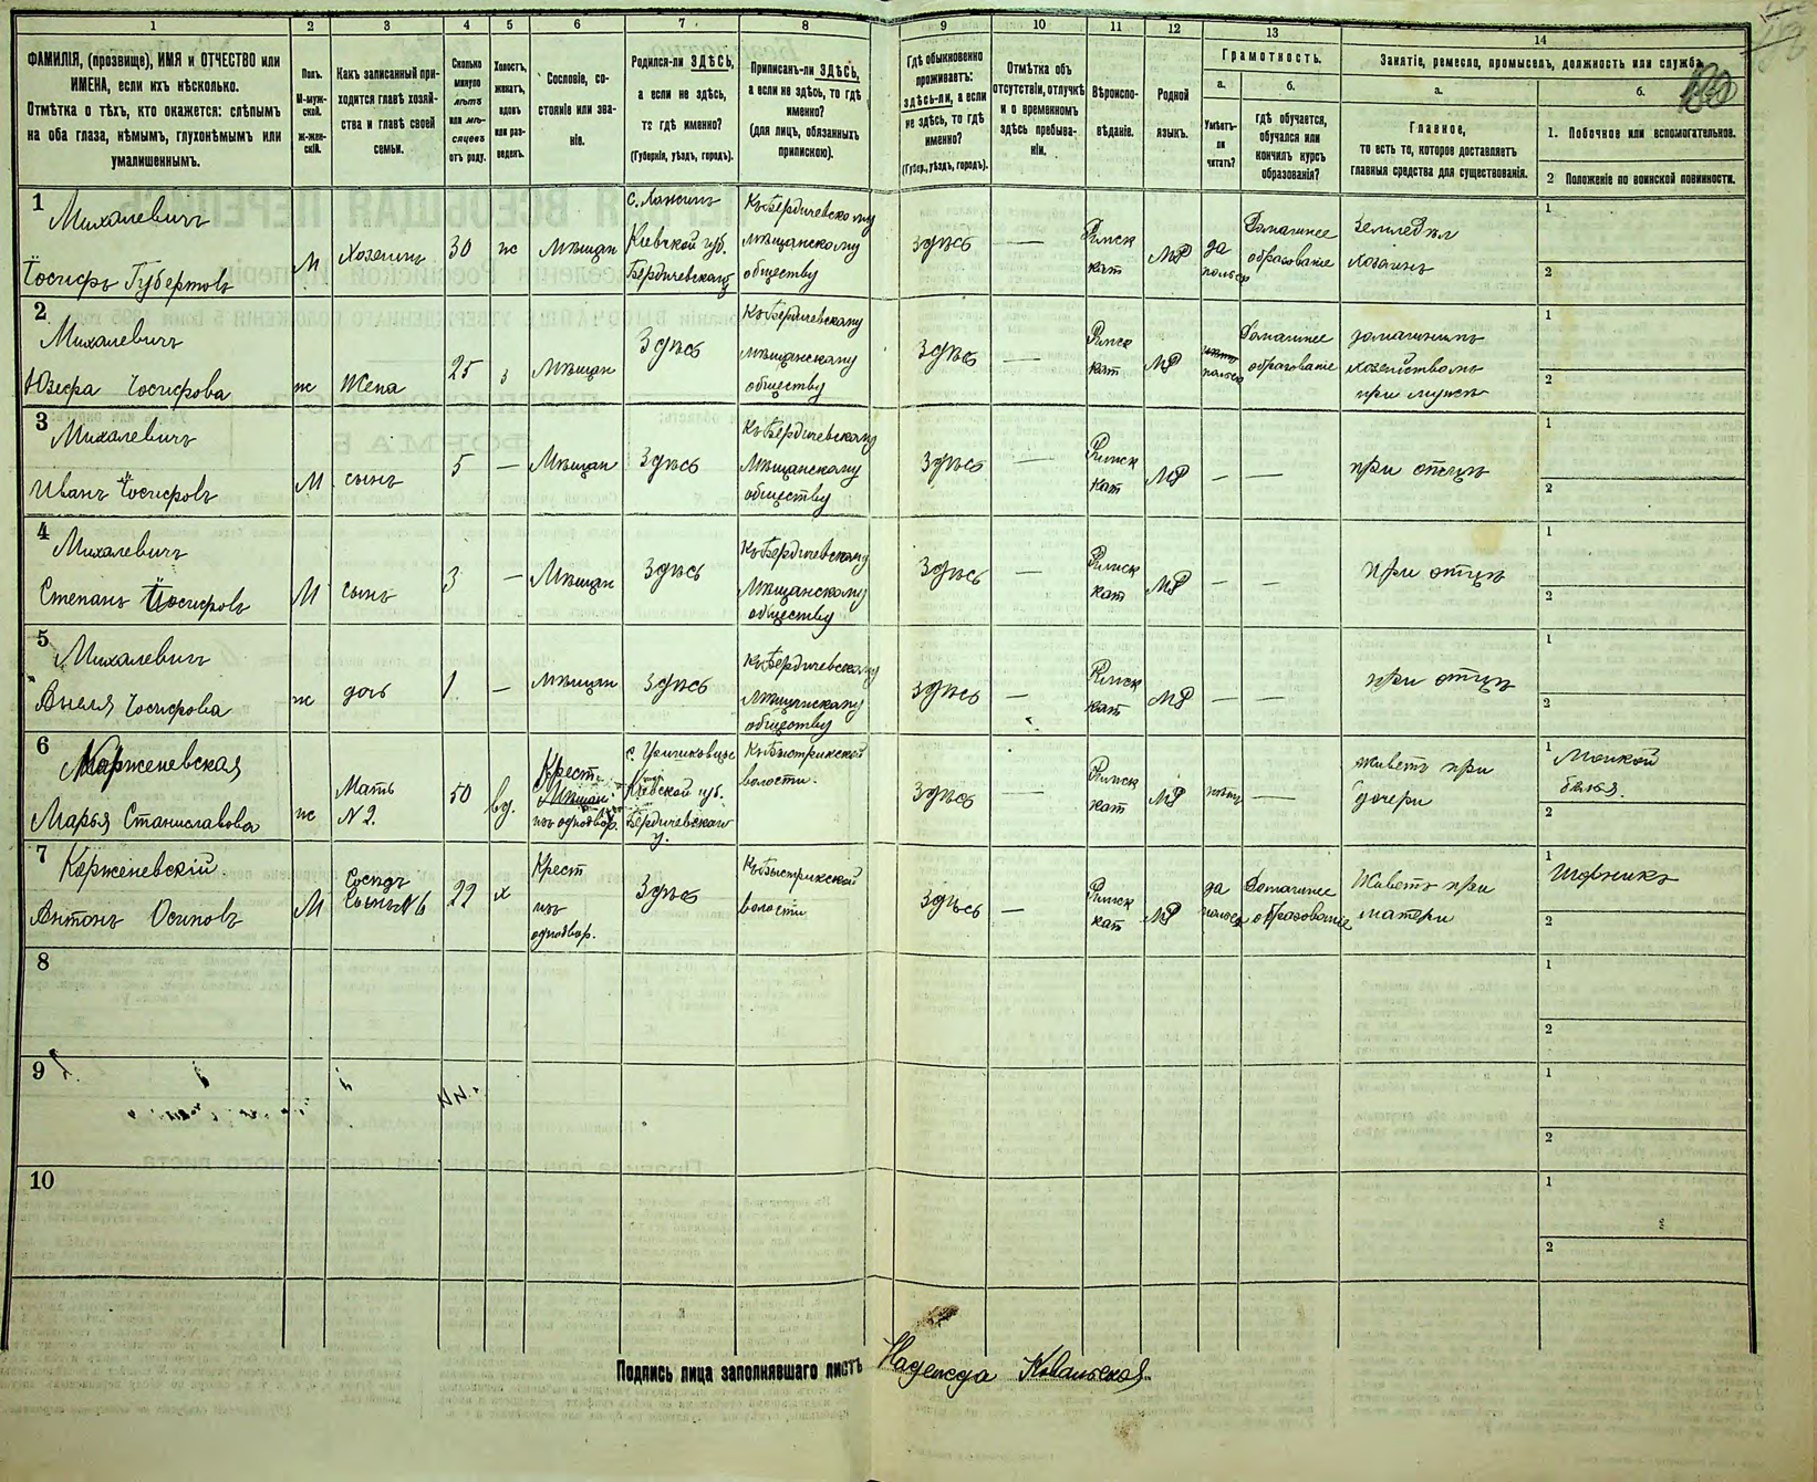 1 2 3 4 5 6 7 8 9 10 11 12 13 14
ФАМИЛІЯ, (прозвище), ИМЯ и ОТЧЕСТВО или
ИМЕНА, если ихъ нѣсколько.
Отмѣтка о тѣхъ, кто окажется: слѣпымъ
на оба глаза, нѣмымъ, глухонѣмымъ или
умалишеннымъ.
Полъ.
М-муж-
ской.
ж-жен-
скій.
Какъ записанный при-
ходится главѣ хозяй-
ства и главѣ своей
семьи.
Сколько
минуло
лѣтъ
или мѣ-
сяцевъ
отъ роду.
Холостъ,
женатъ,
вдовъ
или раз-
веденъ.
Сословіе, со-
стояніе или зва-
ніе.
Родился-ли ЗДѢСЬ,
а если не здѣсь,
то гдѣ именно?
(Губернія, уѣздъ, городъ).
Приписанъ-ли ЗДѢСЬ,
а если не здѣсь, то гдѣ
именно?
(для лицъ, обязанныхъ
припискою).
Гдѣ обыкновенно
проживаетъ:
здѣсь-ли, а если
не здѣсь, то гдѣ
именно?
(Губер., уѣздъ, городъ).
Отмѣтка объ
отсутствіи, отлучкѣ
и о временномъ
здѣсь пребыва-
ніи.
Вѣроиспо-
вѣданіе.
Родной
языкъ.
Грамотность.
а.
Умѣетъ-
ли
читать?
б.
гдѣ обучается,
обучался или
кончилъ курсъ
образованія?
Занятіе, ремесло, промыселъ, должность или служба.
а.
Главное,
то есть то, которое доставляетъ
главныя средства для существованія.
б.
1. Побочное или вспомогательное.
2 Положеніе по воинской повинности.
180
1
Михалевичъ
Іосифъ Губертовъ
М
Хозяинъ
30
ж
Мѣщан
Кіевской губ.
Бердичевскаго
Къ Бердичевскому
мѣщанскому
обществу
Здѣсь
—
Римск
кат
да
польск
Домашнее
образованіе
Земледѣл
хозяинъ
1
2
2
Михалевичъ
Юзефа Іосифова
ж
Жена
25
з
Мѣщан
Здѣсь
Къ Бердичевскому
мѣщанскому
обществу
Здѣсь
—
Римск
кат
польск
Домашнее
образованіе
домашнимъ
хозяйствомъ
при мужѣ
1
2
3
Михалевичъ
Иванъ Іосифовъ
М
сынъ
5
—
Мѣщан
Здѣсь
Къ Бердичевскому
Мѣщанскому
обществу
Здѣсь
—
Римск
кат
—
—
при отцѣ
1
2
4
Михалевичъ
Степанъ Іосифовъ
М
сынъ
3
—
Мѣщан
Здѣсь
Къ Бердичевскому
Мѣщанскому
обществу
Здѣсь
—
Римск
кат
—
—
при отцѣ
1
2
5
Михалевичъ
Анеля Іосифова
ж
дочь
1
—
мѣщан
Здѣсь
Къ Бердичевскому
мѣщанскому
обществу
Здѣсь
—
Римск
кат
—
—
при отцѣ
1
2
6
Карженевская
Марья Станиславова
ж
Мать
№ 2.
50
вд.
Крест
Мѣщан
изъ однодвор.
Кіевской губ.
Бердичевскаго
у.
Къ Быстрикской
волости.
Здѣсь
—
Римск
кат
—
живетъ при
дочери
1
2
7
Карженевскій
Антонъ Осиповъ
М
Сынъ № 6
22
х
Крест
изъ
однодвор.
Здѣсь
Къ Быстрикской
волости
Здѣсь
—
Римск
кат
да
польск
Домашнее
образованіе
Живетъ при
матери
1
Шорникъ
2
8
1
2
9
1
2
10
1
2
Подпись лица заполнявшаго листъ Надежда Ковальская